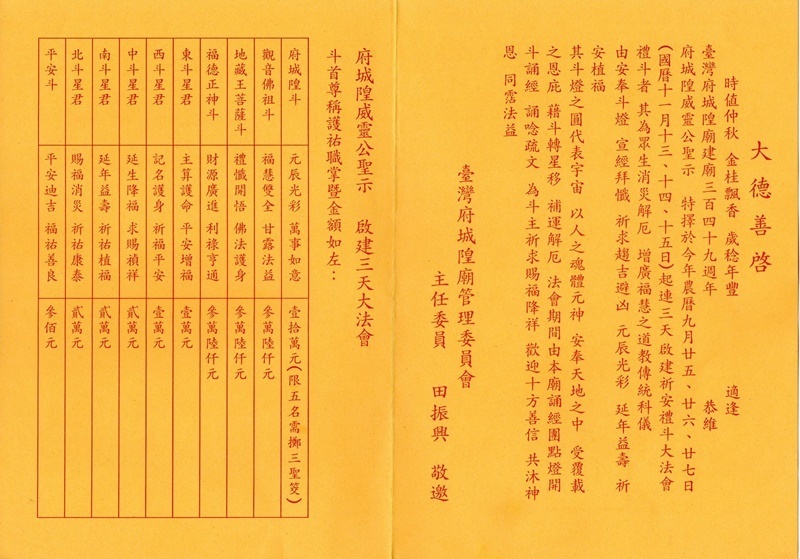 大德善啓
時值仲秋 金桂飄香 歲稔年豐 適逢
臺灣府城隍廟建廟三百四十九週年 恭維
府城隍威靈公聖示 特擇於今年農曆九月廿五、廿六、廿七日
(國曆十一月十三、十四、十五日)起連三天 啟建祈安禮斗大法會
禮斗者 其為眾生消災解厄 增廣福慧之道教傳統科儀
由安奉斗燈 宣經拜懺 祈求趨吉避凶 元辰光彩 延年益壽 祈
安植福
其斗燈之圓代表宇宙 以人之魂體元神 安奉天地之中 受覆載
之恩庇 藉斗轉星移 補運解厄 法會期間由本廟誦經團點燈開
斗誦經 誦唸疏文 為斗主祈求賜福降祥 歡迎十方善信 共沐神
恩 同霑法益
臺灣府城隍廟管理委員會
主任委員 田振興 敬邀
府城隍威靈公聖示 啟建三天大法會
斗首尊稱護祐職掌暨金額如左：
府城隍斗 元辰光彩 萬事如意 壹拾萬元(限五名需擲三聖筊)
觀音佛祖斗 福慧雙全 甘露法益 參萬陸仟元
地藏王菩薩斗 禮懺開悟 佛法護身 參萬陸仟元
福德正神斗 財源廣進 利祿亨通 參萬陸仟元
東斗星君 主算護命 平安增福 壹萬元
西斗星君 記名護身 祈福平安 壹萬元
中斗星君 延生降福 求賜禎祥 貳萬元
南斗星君 延年益壽 祈祐植福 貳萬元
北斗星君 賜福消災 祈祐康泰 貳萬元
平安斗 平安迪吉 福祐善良 參佰元